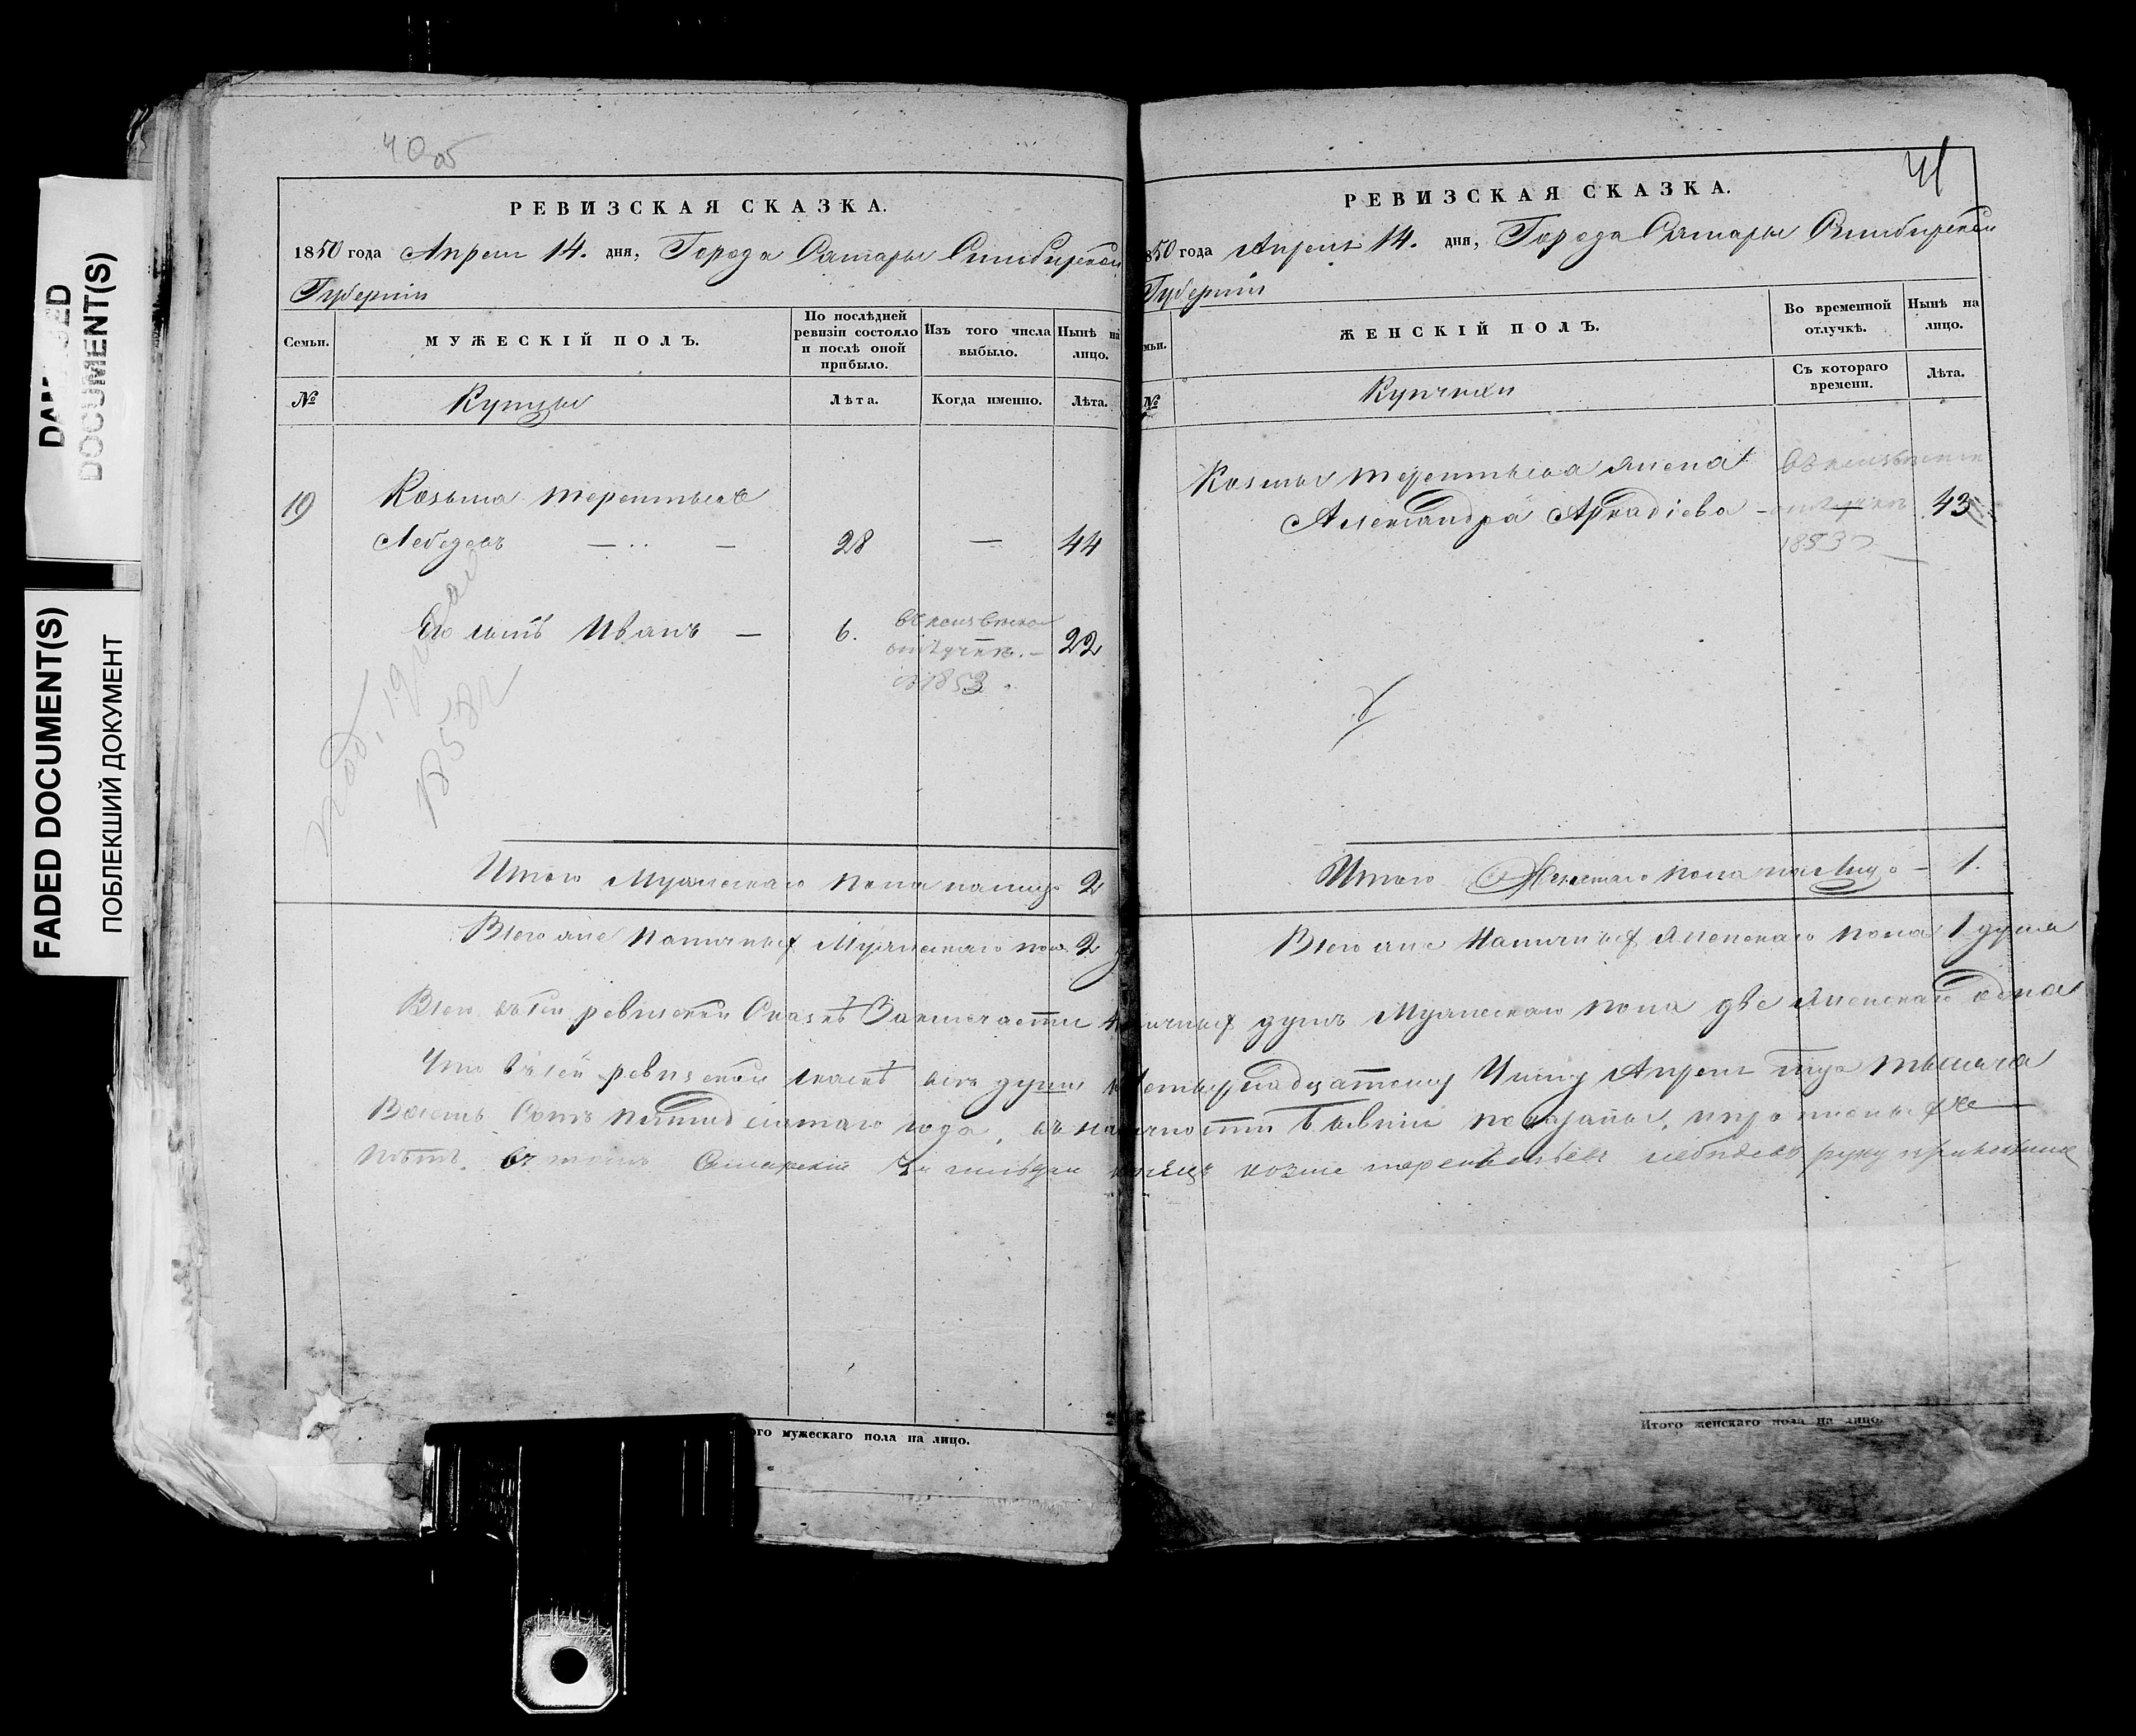 DOCUMENT(S)
FADED DOCUMENT(S)
ПОБЛЕКШИЙ ДОКУМЕНТ
40об
РЕВИЗСКАЯ СКАЗКА.
1850 года Апреля 14. дня, Города Самары Симбирской
Губернiи
Семьи.
МУЖЕСКІЙ ПОЛЪ.
По послѣдней ревизіи состояло и послѣ оной прибыло.
Изъ того числа выбыло.
Нынѣ на лицо.
№
Купцы
Лѣта.
Когда именно.
Лѣта.
19
Козьма Терентьевъ
Лебедевъ — 28 — 44
Его сынъ Иванъ — 6. 22
въ неизвѣстной
отлучкѣ. —
съ 1853
Итого Мужескаго пола налицо 2
Всего же наличныхъ Мужескаго пола 2
41
РЕВИЗСКАЯ СКАЗКА.
1850 года Апреля 14. дня, Города Самары Симбирской
Губернiи
ЖЕНСКІЙ ПОЛЪ.
Во временной отлучкѣ.
Нынѣ на лицо.
№
Купчихи
Съ котораго времени.
Лѣта.
Козьмы Терентьева жена
Александра Аркадіева — 43
въ неизвѣстной
отлучкѣ
1853
Итого Женскаго пола на Лицо — 1.
Всего же Наличныхъ Женскаго пола 1 душа
Всего въ сей ревизской Сказкѣ Заключается наличныхъ душъ Мужескаго пола двѣ Женскаго одна
Что въ сей ревизской сказкѣ всѣ души къ четырнадцатому Числу Апреля тысяча
Восемь Сотъ пятидесятаго года, въ наличности бывшіе показаны, и прописныхъ не—
нѣтъ. въ томъ Самарскій 3й гильдіи купецъ козма терентьевъ лебедевъ руку приложилъ
ого мужескаго пола на лицо.
Итого женскаго пола на лицо.